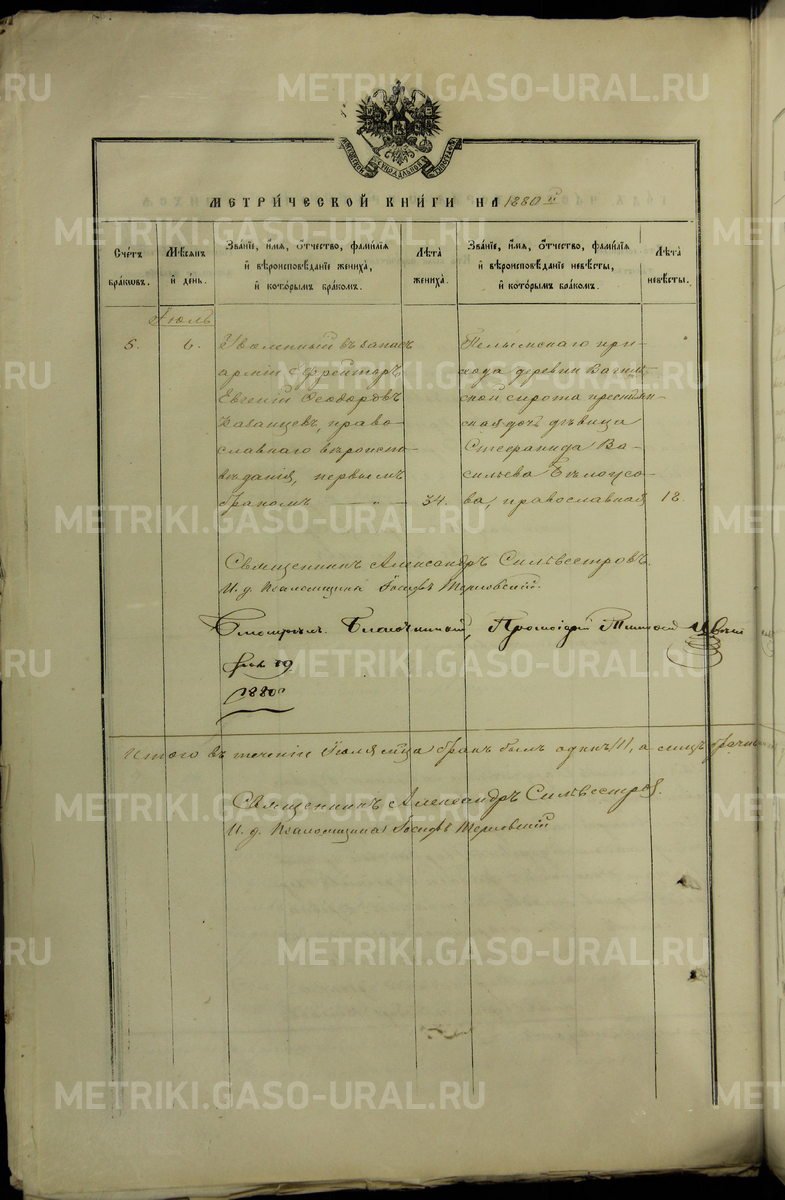 METRIKI.GASO-URAL.RU
МЕТРИ́ЧЕСКОЙ КНИ́ГИ НА 1880 й
Сче́тъ бра́кωвъ.
Мѣ́сяцъ и҆ де́нь.
Зва́нїе, и҆́мя, ѻ҆́тчество, фами́лїя и҆ вѣроисповѣ́данїе жениха̀, и҆ кото́рымъ бра́комъ.
Лѣ́та жениха̀.
Зва́нїе, и҆́мя, ѻ҆́тчество, фами́лїя и҆ вѣроисповѣ́данїе невѣ́сты, и҆ кото́рымъ бра́комъ.
Лѣ́та невѣ́сты.
Іюль
5. 6. Уволенный въ запасъ
арміи Ефрейторъ
Евгеній Ѳеодоровъ
Казанцевъ, право-
славнаго вѣроиспо-
вѣданія, первымъ
бракомъ 34.
Пелымскаго при-
хода деревни Вагиль-
ской сирота крестьян-
ская дочь дѣвица
Стефанида Ва-
сильева Бѣлоусо-
ва, православная 18.
Священникъ Александръ Сильвестровъ.
И. д. Псаломщика Іосифъ Терновскій.
Смотрѣлъ Благочинный, Протоіерей
1880
Итого въ теченіи Іюля м‑ца бракъ былъ одинъ /1/, а лицъ брачив
Священникъ Александръ Сильвестровъ.
И. д. Псаломщика Іосифъ Терновскій